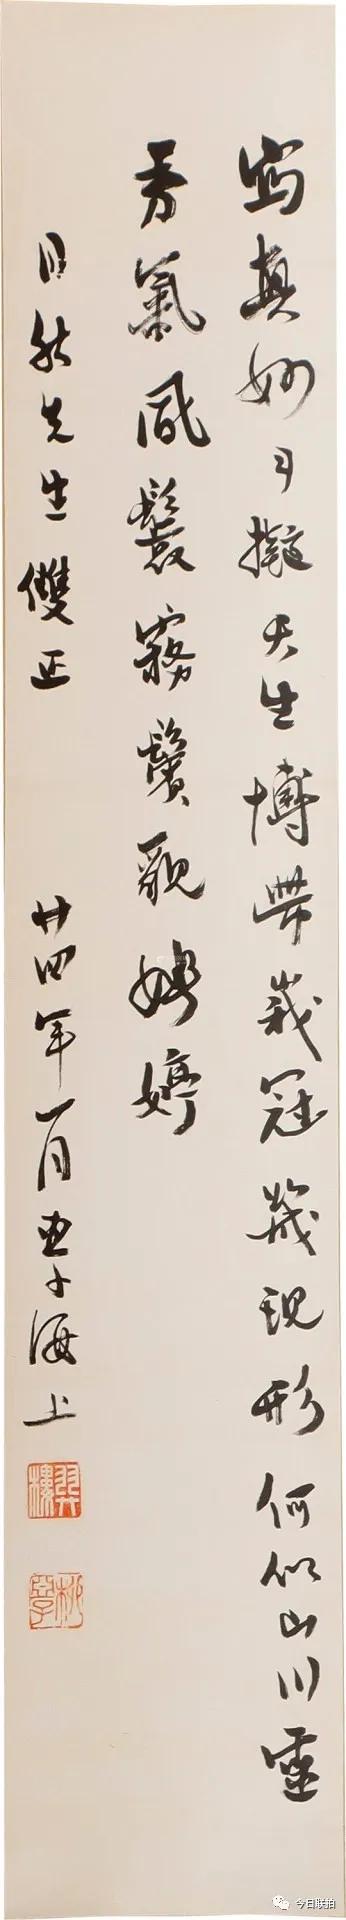 寫真妙手擬天生博帶峩冠幾現形何似山川靈
秀氣風鬟霧鬢貌娉婷
自然先生雙正 廿四年一月亞子海上
羿樓
今日联拍